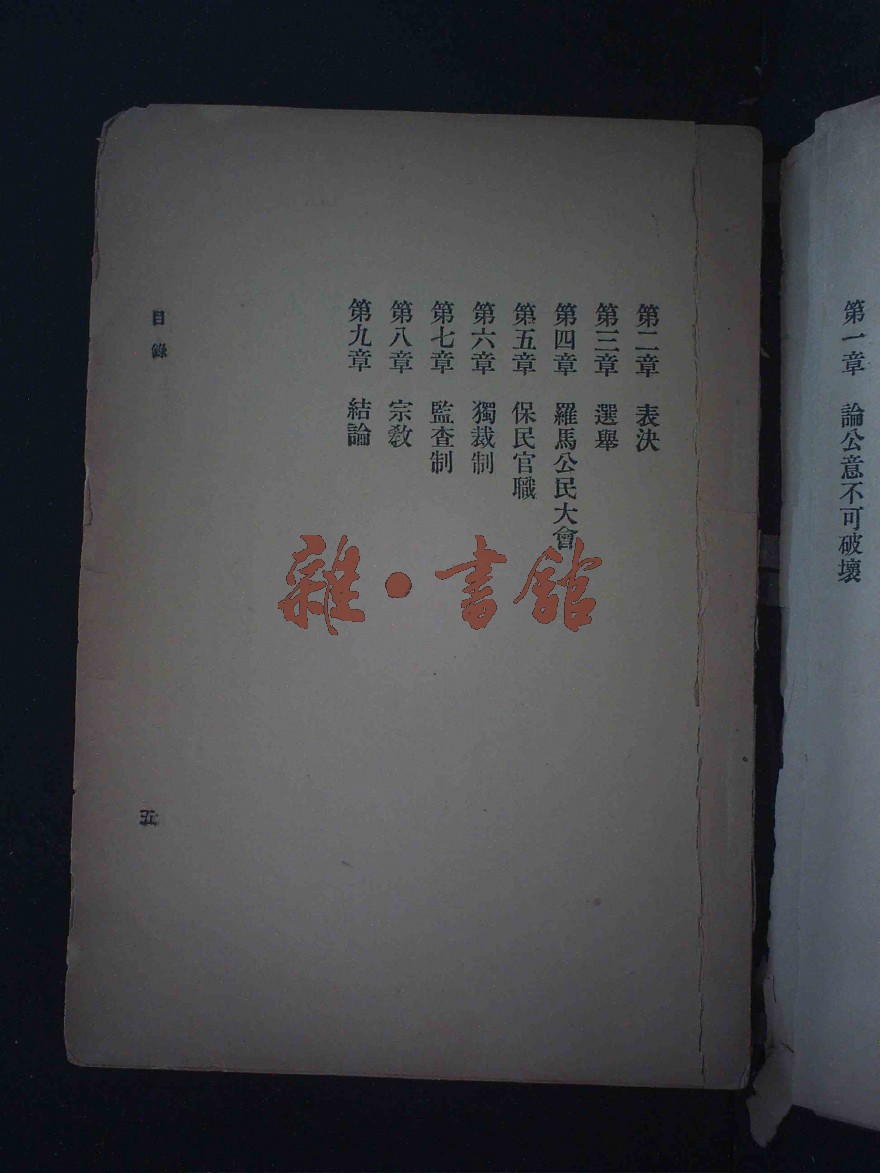 第一章　論公意不可破壞
第二章　表決
第三章　選舉
第四章　羅馬公民大會
第五章　保民官職
第六章　獨裁制
第七章　監查制
第八章　宗教
第九章　結論
目錄
五
雜·書館